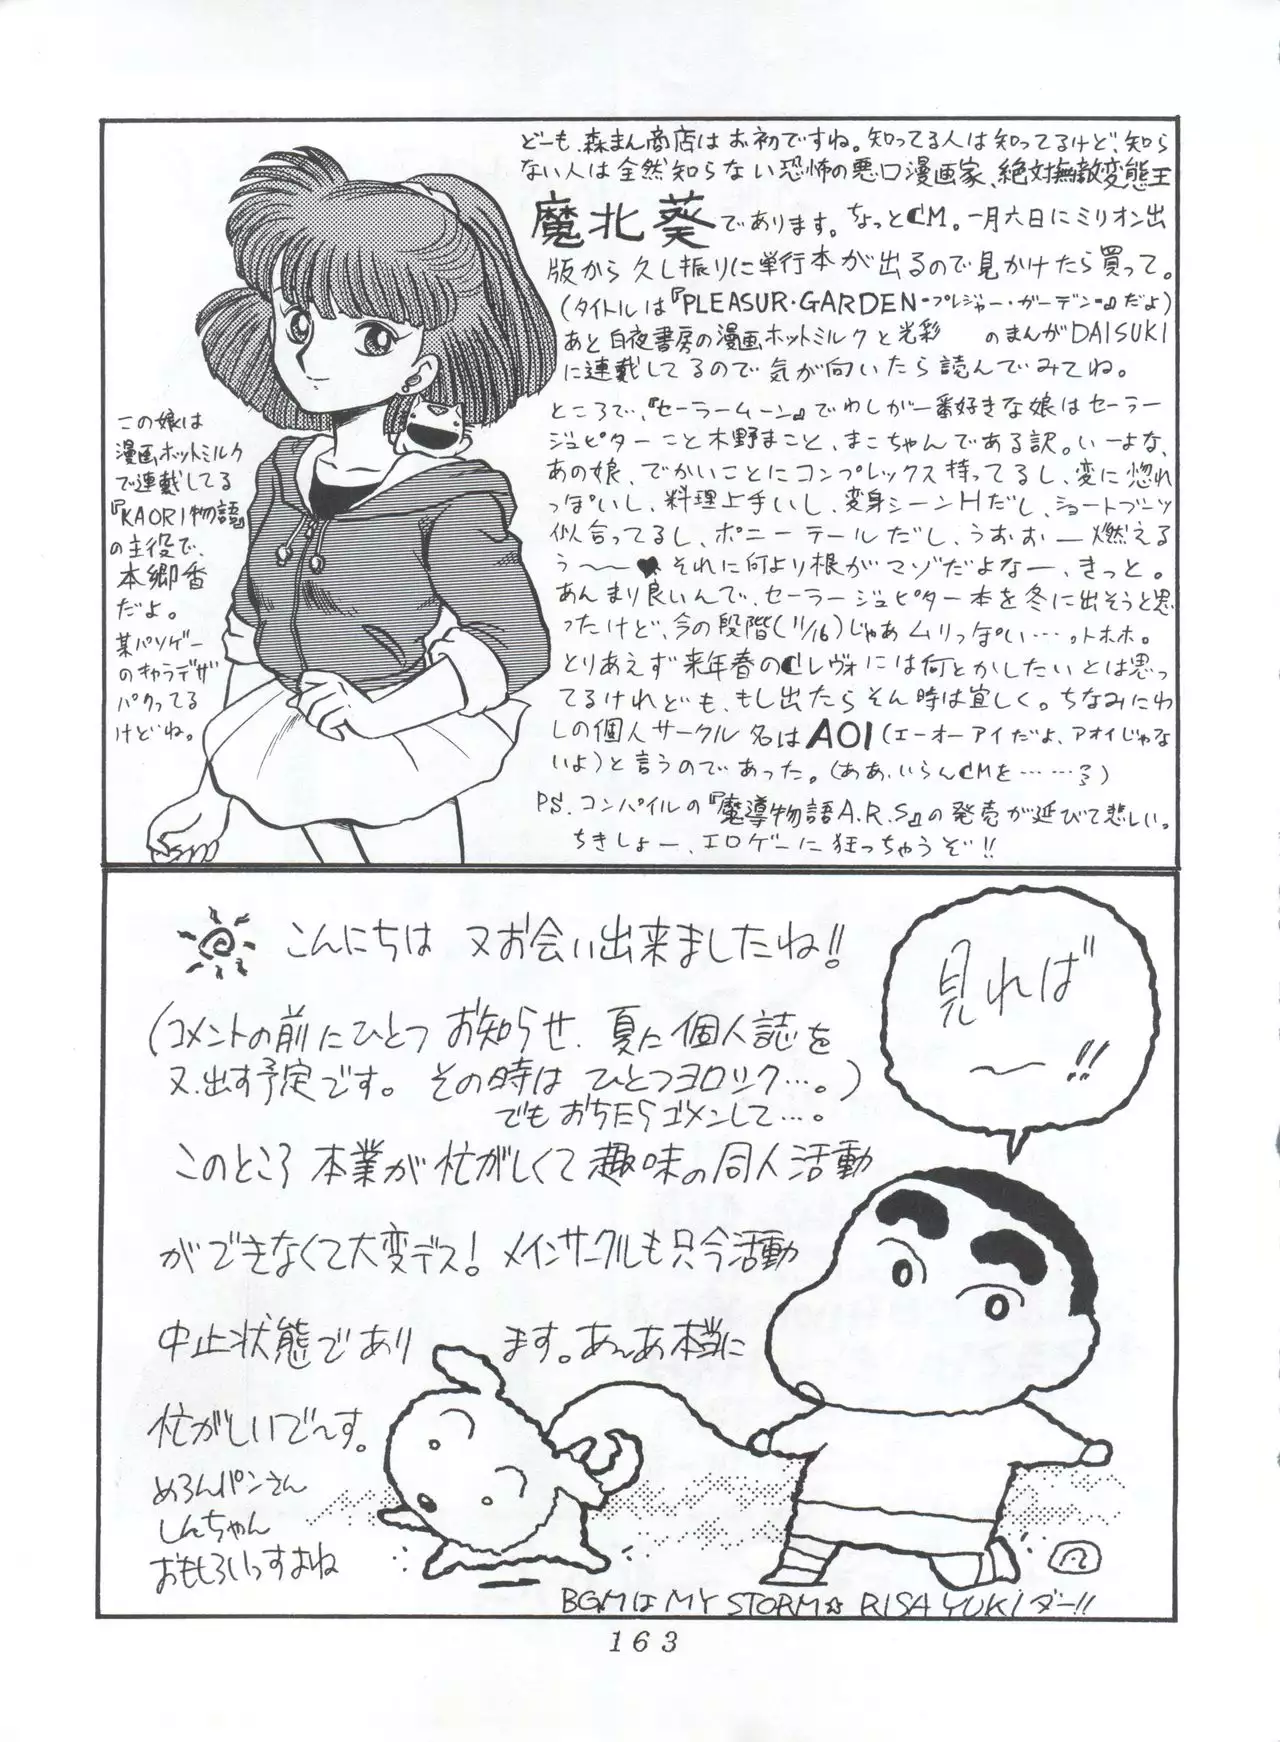 どーも、森まん商店はお初ですね。知ってる人は知ってるけど、知ら
ない人は全然知らない恐怖の悪口漫画家、絶対無敵変態王
魔北葵であります。ちょっとCM。一月六日にミリオン出
版から久し振りに単行本が出るので見かけたら買って。
(タイトルは『PLEASUR・GARDEN・プレジャー・ガーデン・』だよ)
あと白夜書房の漫画ホットミルクと光彩 のまんがDAISUKI
に連載してるので気が向いたら読んでみてね。
ところで、『セーラームーン』でわしが一番好きな娘はセーラー
ジュピターこと木野まこと、まこちゃんである訳。いーよな、
あの娘、でかいことにコンプレックス持ってるし、変に惚れ
っぽいし、料理上手いし、変身シーンHだし、ショートブーツ
似合ってるし、ポニーテールだし、うおぉー燃える
う〜〜♥それに何より根がマゾだよなー、きっと。
あんまり良いんで、セーラージュピター本を冬に出そうと思
ったけど、今の段階(11/16)じゃあムリっぽい…。トホホ。
とりあえず来年春のCレヴォには何とかしたいとは思っ
てるけれども、もし出たらそん時は宜しく。ちなみにわ
しの個人サークル名はAOI(エーオーアイだよ、アオイじゃな
いよ)と言うのであった。(ああ、いらんCMを……ろ)
PS.コンパイルの『魔導物語A.R.S』の発売が延びて悲しいっ
ちきしょー、エロゲーに狂っちゃうぞ!!
この娘は
漫画ホットミルク
で連載してる
『KAORI物語』
の主役で、
本郷香
だよ。
某パソゲー
のキャラデザ
パクってる
けどね。
こんにちは 又お会い出来ましたね!!
(コメントの前にひとつ お知らせ、夏に個人誌を
又、出す予定です。その時は ひとつヨロシク…。)
でもおちたらゴメンして…。
このところ 本業が忙がしくて趣味の同人活動
ができなくて大変デス! メインサークルも只今活動
中止状態であり ます。あんあ本当に
忙がしいで〜す。
めろんパンさん
しんちゃん
おもしろいっすよね
見れば
〜!!
BGMはMY STORM☆RISA YUKIダー!!
163